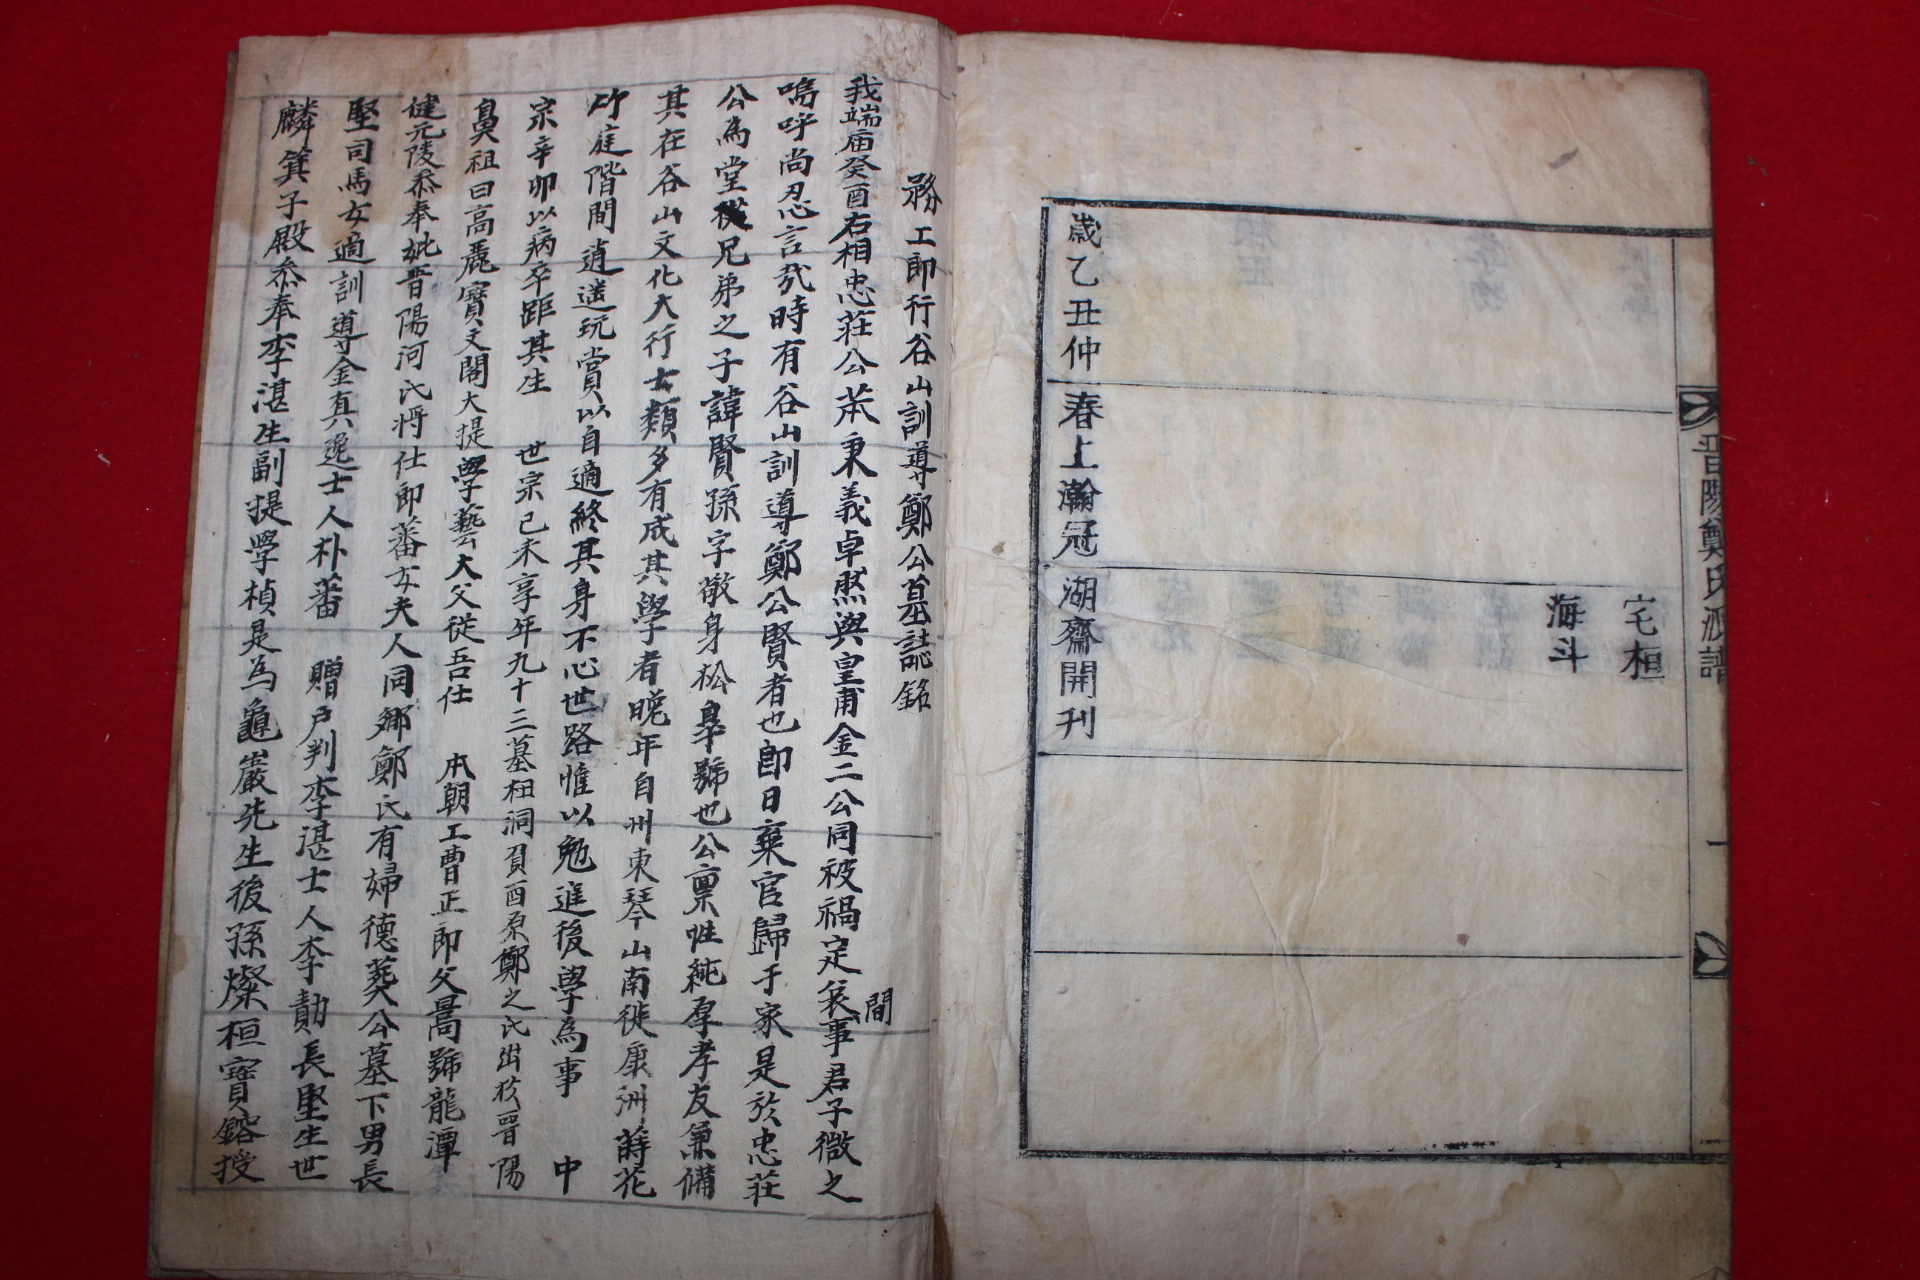 宅桓
海斗
歲乙丑仲春上瀚冠湖齋開刊
晋陽鄭氏派譜
一
務工郎行谷山訓導鄭公墓誌銘
我端庙癸酉右相忠莊公苯秉義卓㷼與皇甫金二公同被禍定㒮事君子微之
間
嗚呼尚忍言㢤時有谷山訓導鄭公賢者也卽日棄官歸于家是於忠莊
公為堂從兄弟之子諱賢孫字敬身松皐號也公禀性純厚孝友兼備
其在谷山文化大行士類多有成其學者晚年自州東琴山南徙康洲蒔花
竹庭階間逍遥玩賞以自適終其身不心世路惟以勉進後學為事 中
宗辛卯以病卒距其生 世宗己未享年九十三墓柤洞負酉原鄭之氏出於晋陽
鼻祖曰高麗寳文閣大提學藝大父従吾仕 本朝工曹正郎父暠號龍潭
健元陵叅奉妣晋陽河氏將仕郎蕃女夫人同郷鄭氏有婦德葬公墓下男長
堅司馬女適訓導金真逸士人朴蕃 贈戸判李湛士人李勣長堅生世
麟箕子殿叅奉李湛生副提学楨是為龜巖先生後孫燦桓寳鎔授